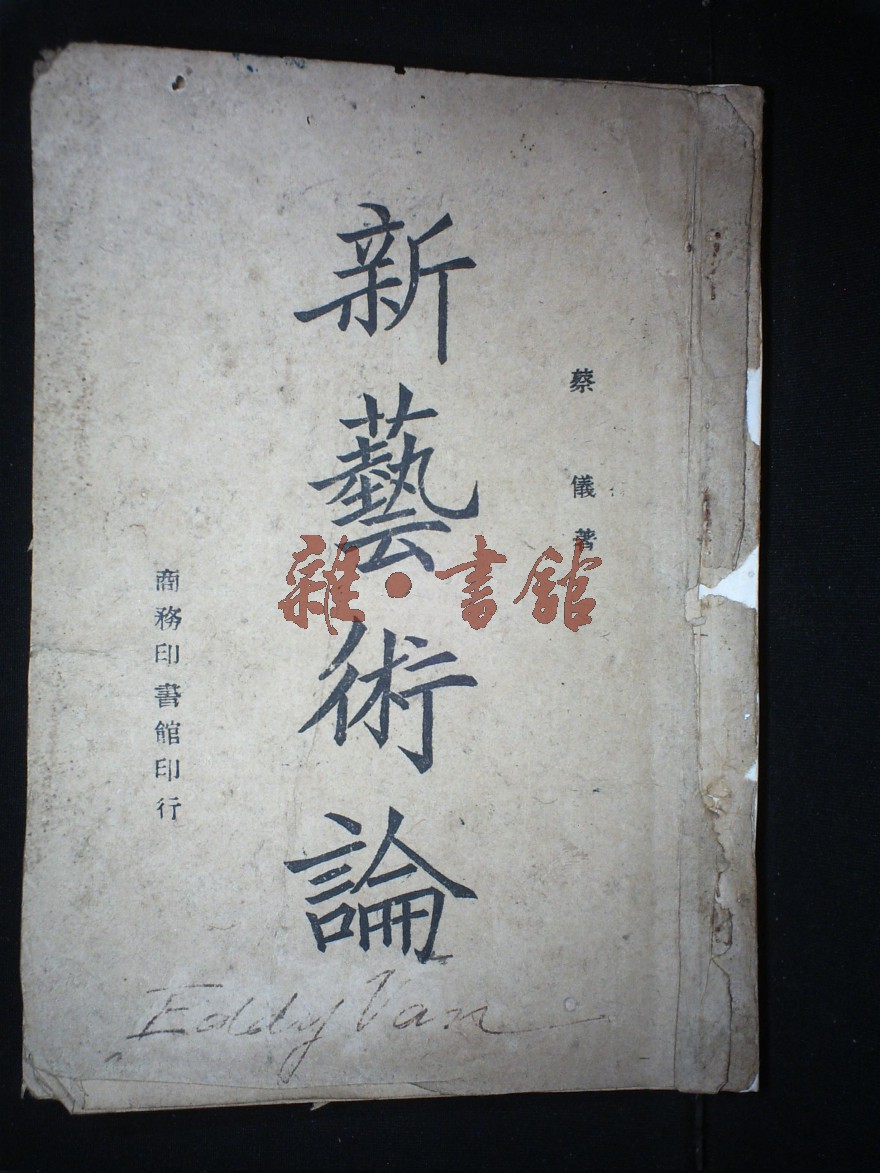 蔡儀著
新藝術論
商務印書館印行
雜·書館
Eddy Van